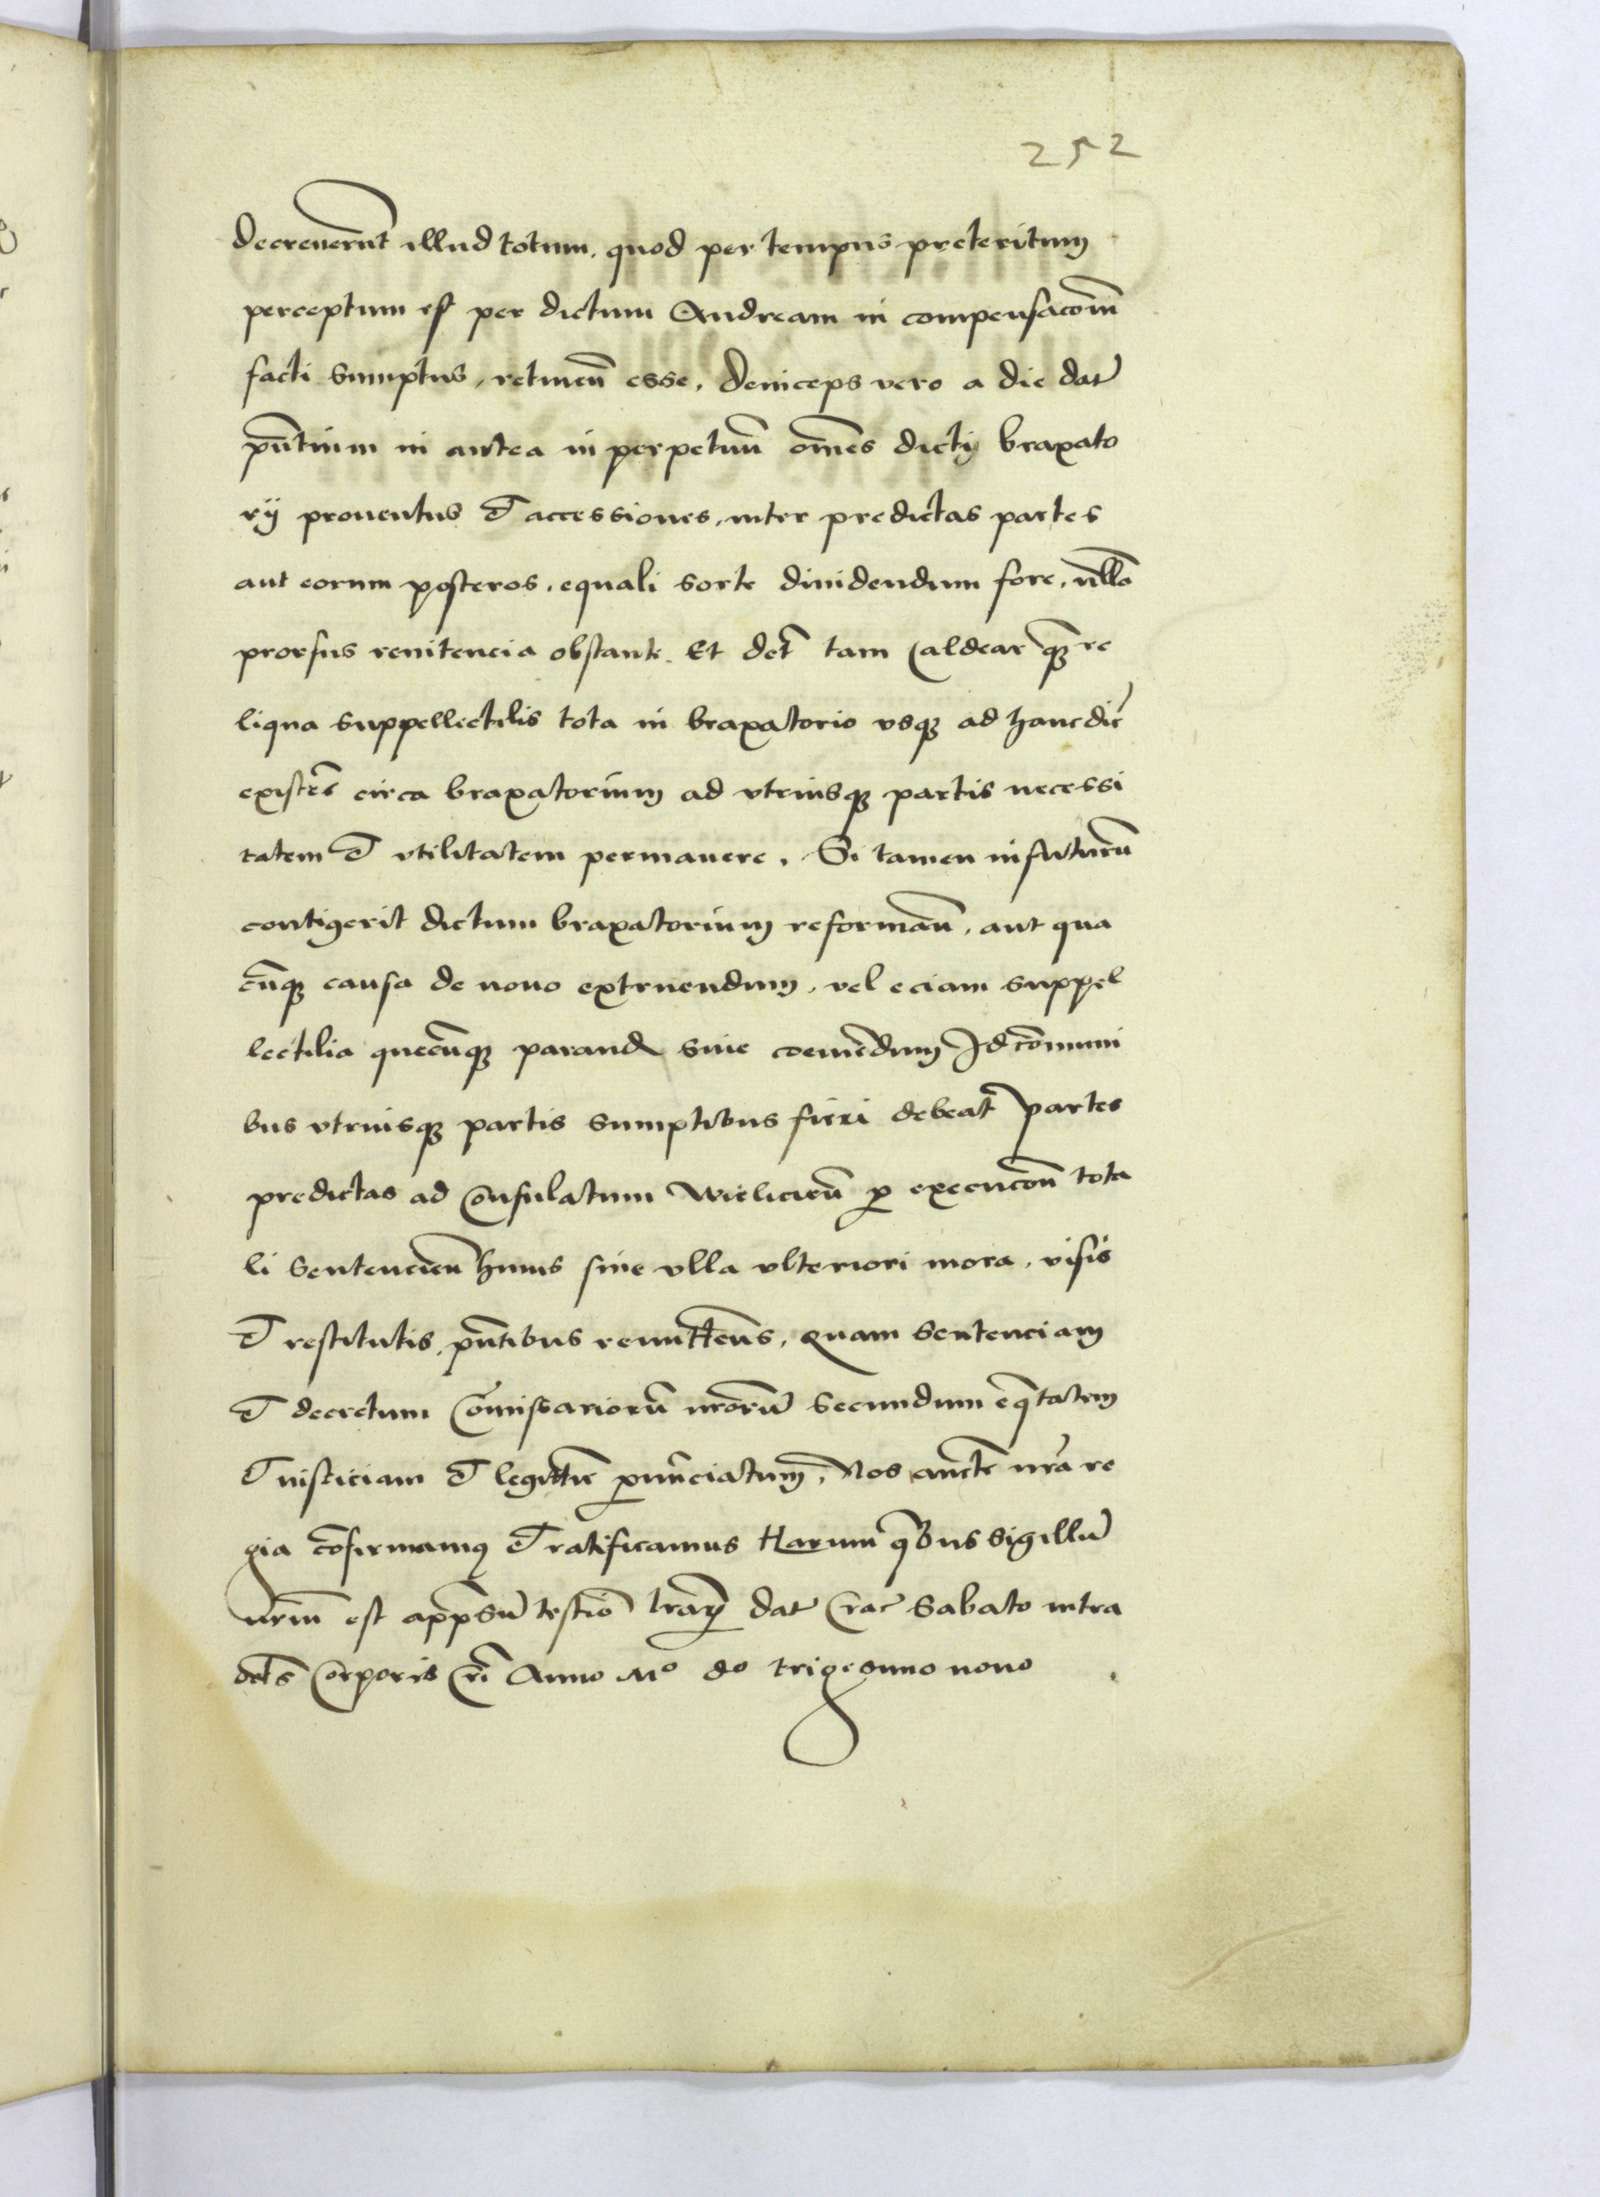 252
decreuerūt illud totum. quod per tempus preteritum
perceptum est per dictum Andream in compensacōm
facti sumptus, retineñ esse. Deinceps vero a die dat̄
pn̄tium in antea in perpetuū om̄es dictij braxato
rij prouentus et accessiones, inter predictas partes
aut eorum posteros. equali sorte diuidendum fore, null̄a
prorsus renitencia obstante. Et det̄ tam Caldear qꝫ re
liqua suppellectilis tota in braxatorio vsqꝫ ad hanc diē
existēs circa braxatorium ad vtriusqꝫ partis necessi
tatem et vtilitatem permanere. Si tamen in futurū
contigerit dictum braxatorium reformañ, aut qua
cūqꝫ causa de nouo extruendum, vel eciam suppel
lectilia quecūqꝫ parand siue coemēdum Id cōmuni
bus vtriusqꝫ partis sumptibus fieri debeat̄ partes
predictas ad Consulatum Wielicieñ p execucōn tota
li sentencieñ huius sine vlla vlteriori mora, visis
et restitutis, pn̄tibus remittēns. Quam Sentenciam
et decretum Com̄issariorū nrōrū secundum eq̄tatem
et iusticiam et legitt̄ie pnun̄ciatum, Nos auct̄e nr̄a re
gia cōfirmamus et ratificamus Harum q̄bus sigillū
nrm̄ est app̄sū testīo lrarꝝ dat̄ Crac̄ Sabato intra
oct̄s Corporis Cr̄i Anno Mo do trigesimo nono